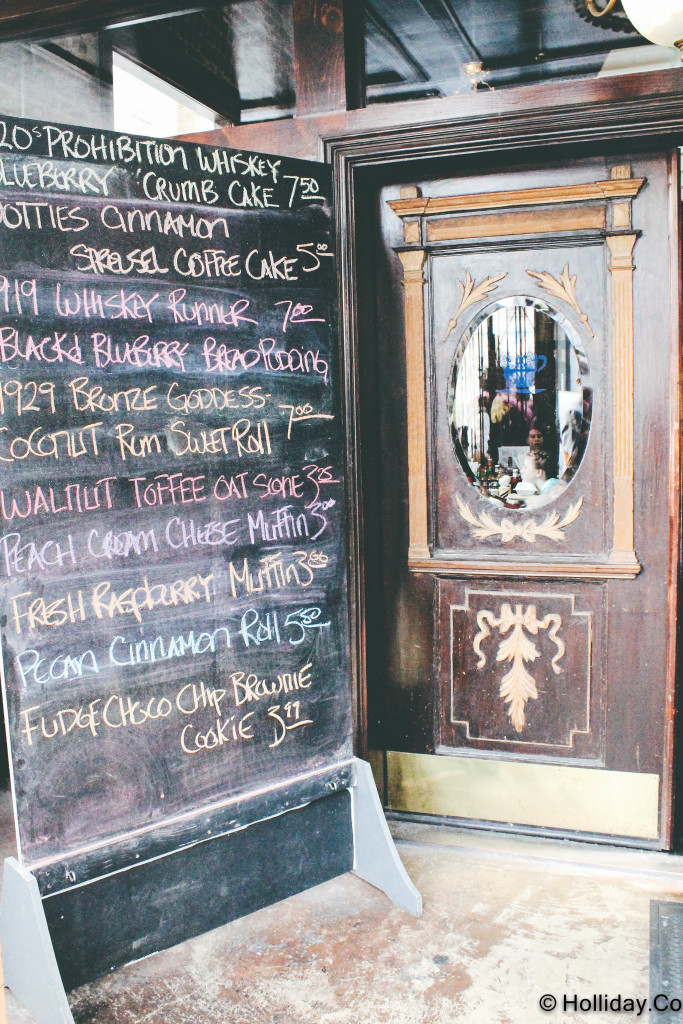 20s PROHIBITION WHISKEY
BLUEBERRY CRUMB CAKE 7.50
DOTTIES CINNAMON
STREUSEL COFFEE CAKE 5.00
1919 WHISKEY RUNNER 7.00
BLACK'D BLUEBERRY BREAD PUDDING
1929 BRONZE GODDESS-
COCONUT RUM SWEET ROLL 7.00
WALNUT TOFFEE OAT SCONE
PEACH CREAM CHEESE MUFFIN 3.00
FRESH RASPBERRY MUFFIN
PECAN CINNAMON ROLL 5.50
FUDGE CHOCO CHIP BROWNIE
COOKIE 3.99
© Holliday.Co